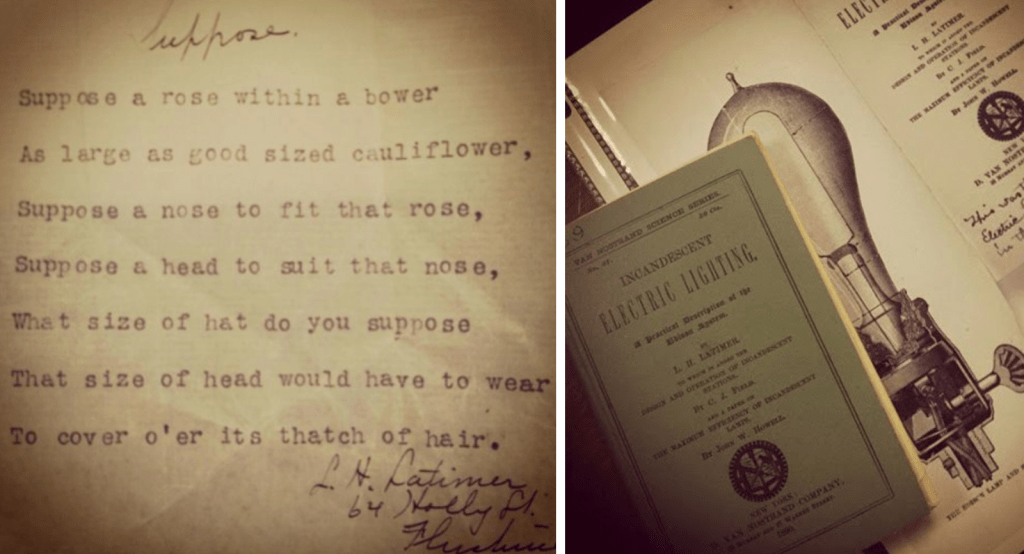 Suppose.
Suppose a rose within a bower
As large as good sized cauliflower,
Suppose a nose to fit that rose,
Suppose a head to suit that nose,
What size of hat do you suppose
That size of head would have to wear
To cover o'er its thatch of hair.
L. H. Latimer
64 Holly St.
Flushin
9
VAN NOSTRAND SCIENCE SERIES.
INCANDESCENT
ELECTRIC LIGHTING.
A Practical Description of the
Edison System.
BY
L. H. LATIMER.
TO WHICH IS ADDED THE
DESIGN AND OPERATION OF INCANDESCENT
STATIONS.
By C. J. FIELD.
AND A PAPER ON
THE MAXIMUM EFFICIENCY OF INCANDESCENT
LAMPS.
By JOHN W. HOWELL.
NEW YORK:
D. VAN NOSTRAND COMPANY,
1890.
ELECTRI
A Practical Descri
BY
L. H. LATIMER.
TO WHICH IS ADDED THE
DESIGN AND OPERATION OF INCANDESCENT
STATIONS.
By C. J. FIELD.
AND A PAPER ON
THE MAXIMUM EFFICIENCY OF INCANDESCEN
LAMPS.
By JOHN W. HOWE
NEW Y
D. VAN NOSTR
This was
Electric
in th
THE EDISON LAMP AND